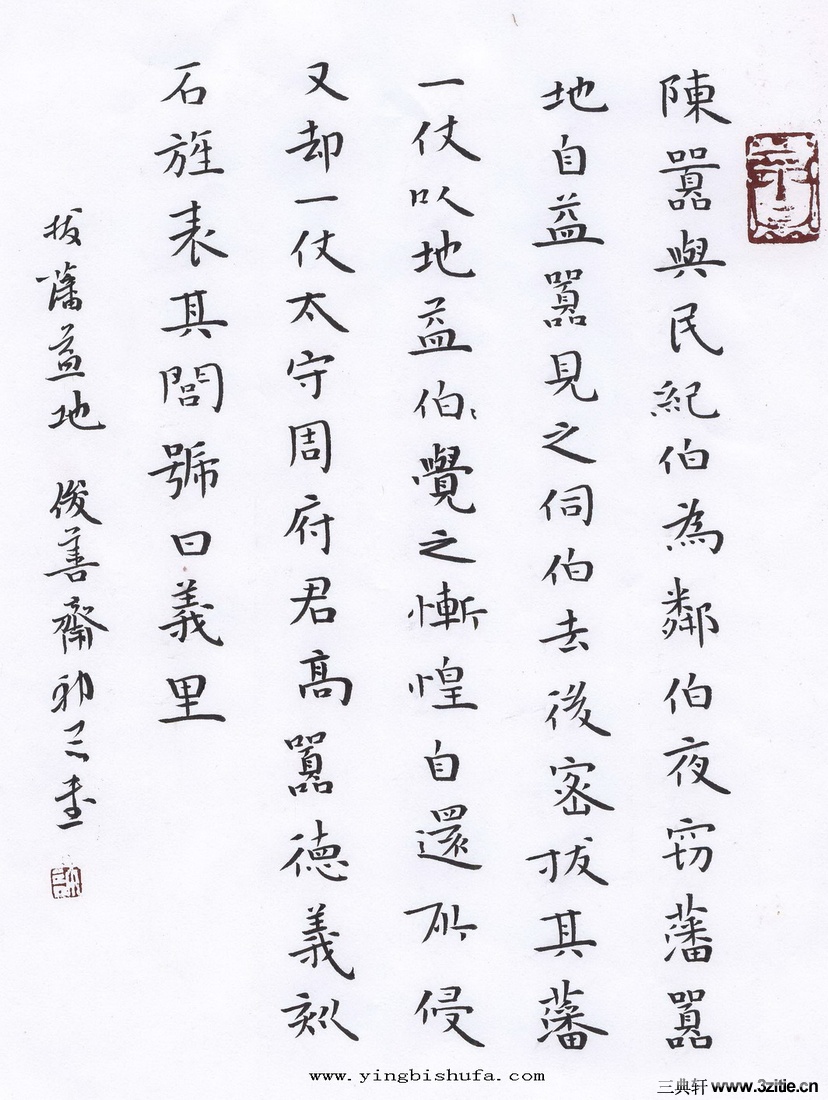 陳囂與民紀伯為鄰伯夜窃藩囂
地自益囂見之伺伯去後密拔其藩
一仗以地益伯〻覺之慚惶自還所侵
又却一仗太守周府君高囂德義刻
石旌表其閭號曰義里
拔藩益地 俊善齋
www.yingbishufa.com
三典轩 www.3zitie.cn